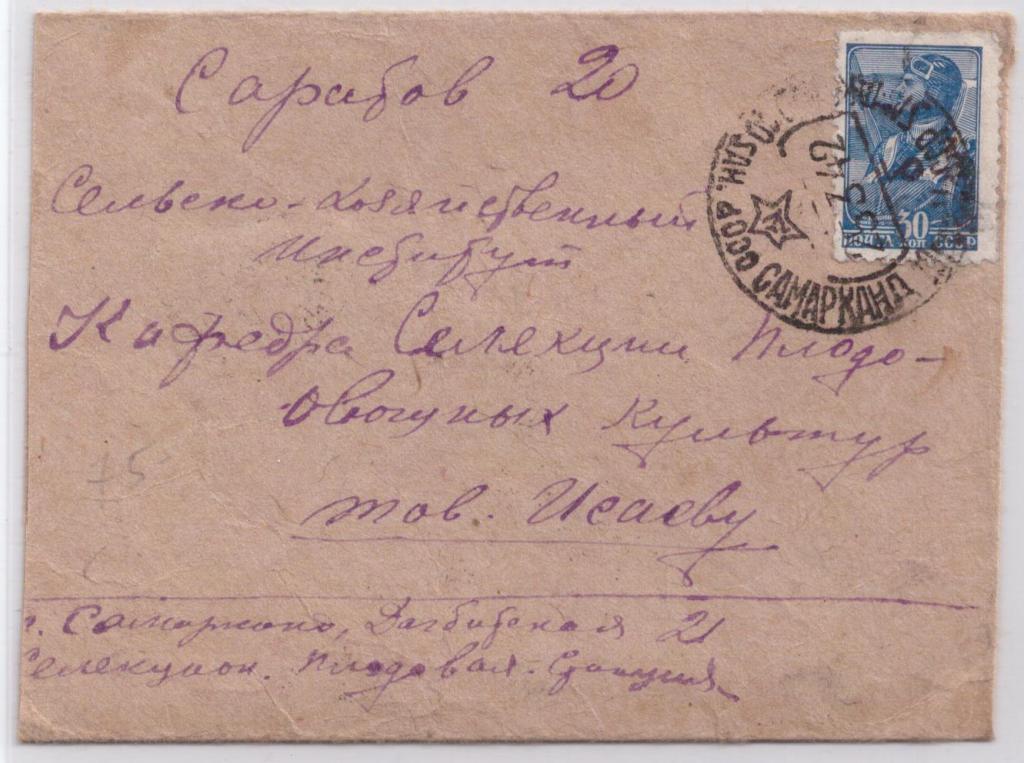 Саратов 20
Сельско-хозяйственный
Институт
Кафедра Селекции Плодо-
Овощных культур
тов. Исаеву
г. Самарканд, Дагбитская 21
Селекцион. Плодовая. Станция
30
ПОЧТА КОП СССР
САМАРКАНД
75